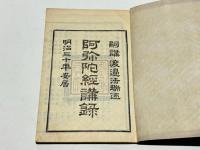 嗣講渡邉法瑞述
阿彌陀經講録
明治三十年安居